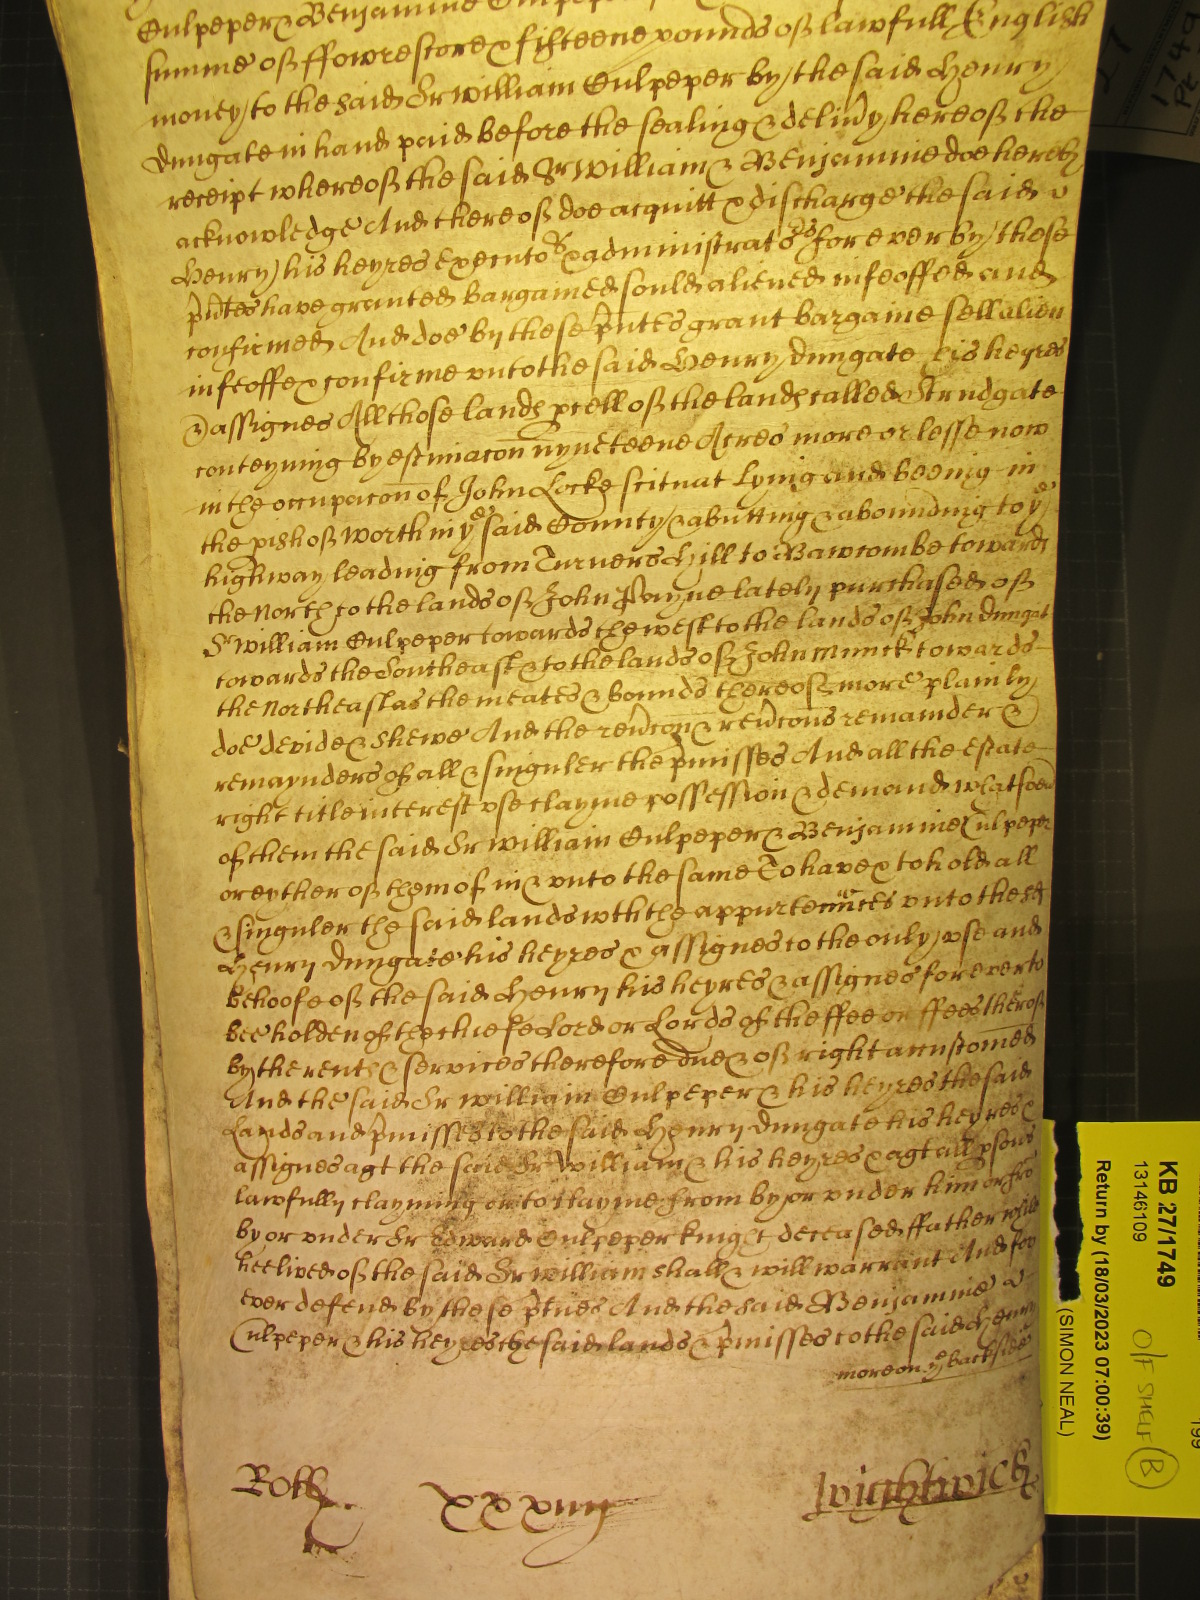 Culpeper & Benjamine
summe of ffowrescore & fifteene pounds of lawfull English
money to the said Sr William Culpeper by the said Henry
Dungate in hand paid before the sealing & delivy hereof the
receipt whereof the said Sr William & Benjamine doe hereby
acknowledge And thereof doe acquitt & discharge the said
Henry his heyres executors & administrators for ever by these
pntes have granted bargained sould aliened infeoffed and
confirmed And doe by these pntes grant bargaine sell alien
infeoffe & confirme unto the said Henry Dungate his heyres
& assignes All those lands pcell of the lands called Strudgate
conteyning by estimacon nyneteene Acres more or lesse now
in the occupacon of John Locke scituat lying and beeing in
the pish of Worth in ye said County & abutting & abounding to ye
highway leading from Turners Hill to Bawcombe towards
the North to the lands of John Payne lately purchased of
Sr William Culpeper towards the west to the lands of John Dungat
towards the Southeast & to the lands of John Munck towards
the Northeast as the meates & bounds thereof more plainly
doe devide & shewe And the revcon & revcons remainder &
remaynders of all & singuler the pmisses And all the estate
right title interest use clayme possession & demand whatsoev
of them the said Sr William Culpeper & Benjamine Culpeper
or eyther of them of in & unto the same To have & to hold all
& singuler the said lands wth the appurtennces unto the sd
Henry Dungate his heyres & assignes to the only use and
behoofe of the said Henry his heyres & assignes for ever to
bee holden of the chiefe Lord or Lords of the ffee or ffees thereof
by the rents & services therefore due & of right accustomed
And the said Sr William Culpeper & his heyres the said
Lands and pmisses to the said Henry Dungate his heyres &
assignes agt the said Sr William & his heyres & agt all psons
lawfully clayming or to clayme from by or under him or fro
by or under Sr Edward Culpeper kingt deceased ffather while
hee lived of the said Sr William shall & will warrant And for
ever defend by these ptnes And the said Benjamine
Culpeper & his heyres the said lands & pmisses to the said Henry
more on ye backside
Roll
xxxiiij
Wightwick
KB 27/1749
13146109
O/F SHELF B
Return by (18/03/2023 07:00:39)
(SIMON NEAL)
199
27
1749
Pt